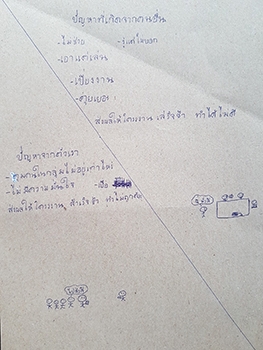 ปัญหาที่เกิดจากคนอื่น
-ไม่ช่วย -รู้แต่ไม่บอก
-เอาแต่เล่น
-เกี่ยงงาน
-คุยเยอะ
ส่งผลให้โครงงาน เสร็จช้า ทำได้ไม่ดี
ปัญหาจากตัวเรา
-คุมคนในกลุ่มไม่อยู่เท่าไหร่
-ไม่มีความมั่นใจ -เบื่อ
ส่งผลให้โครงงาน สำเร็จช้า ทำไม่ถูกต้อง